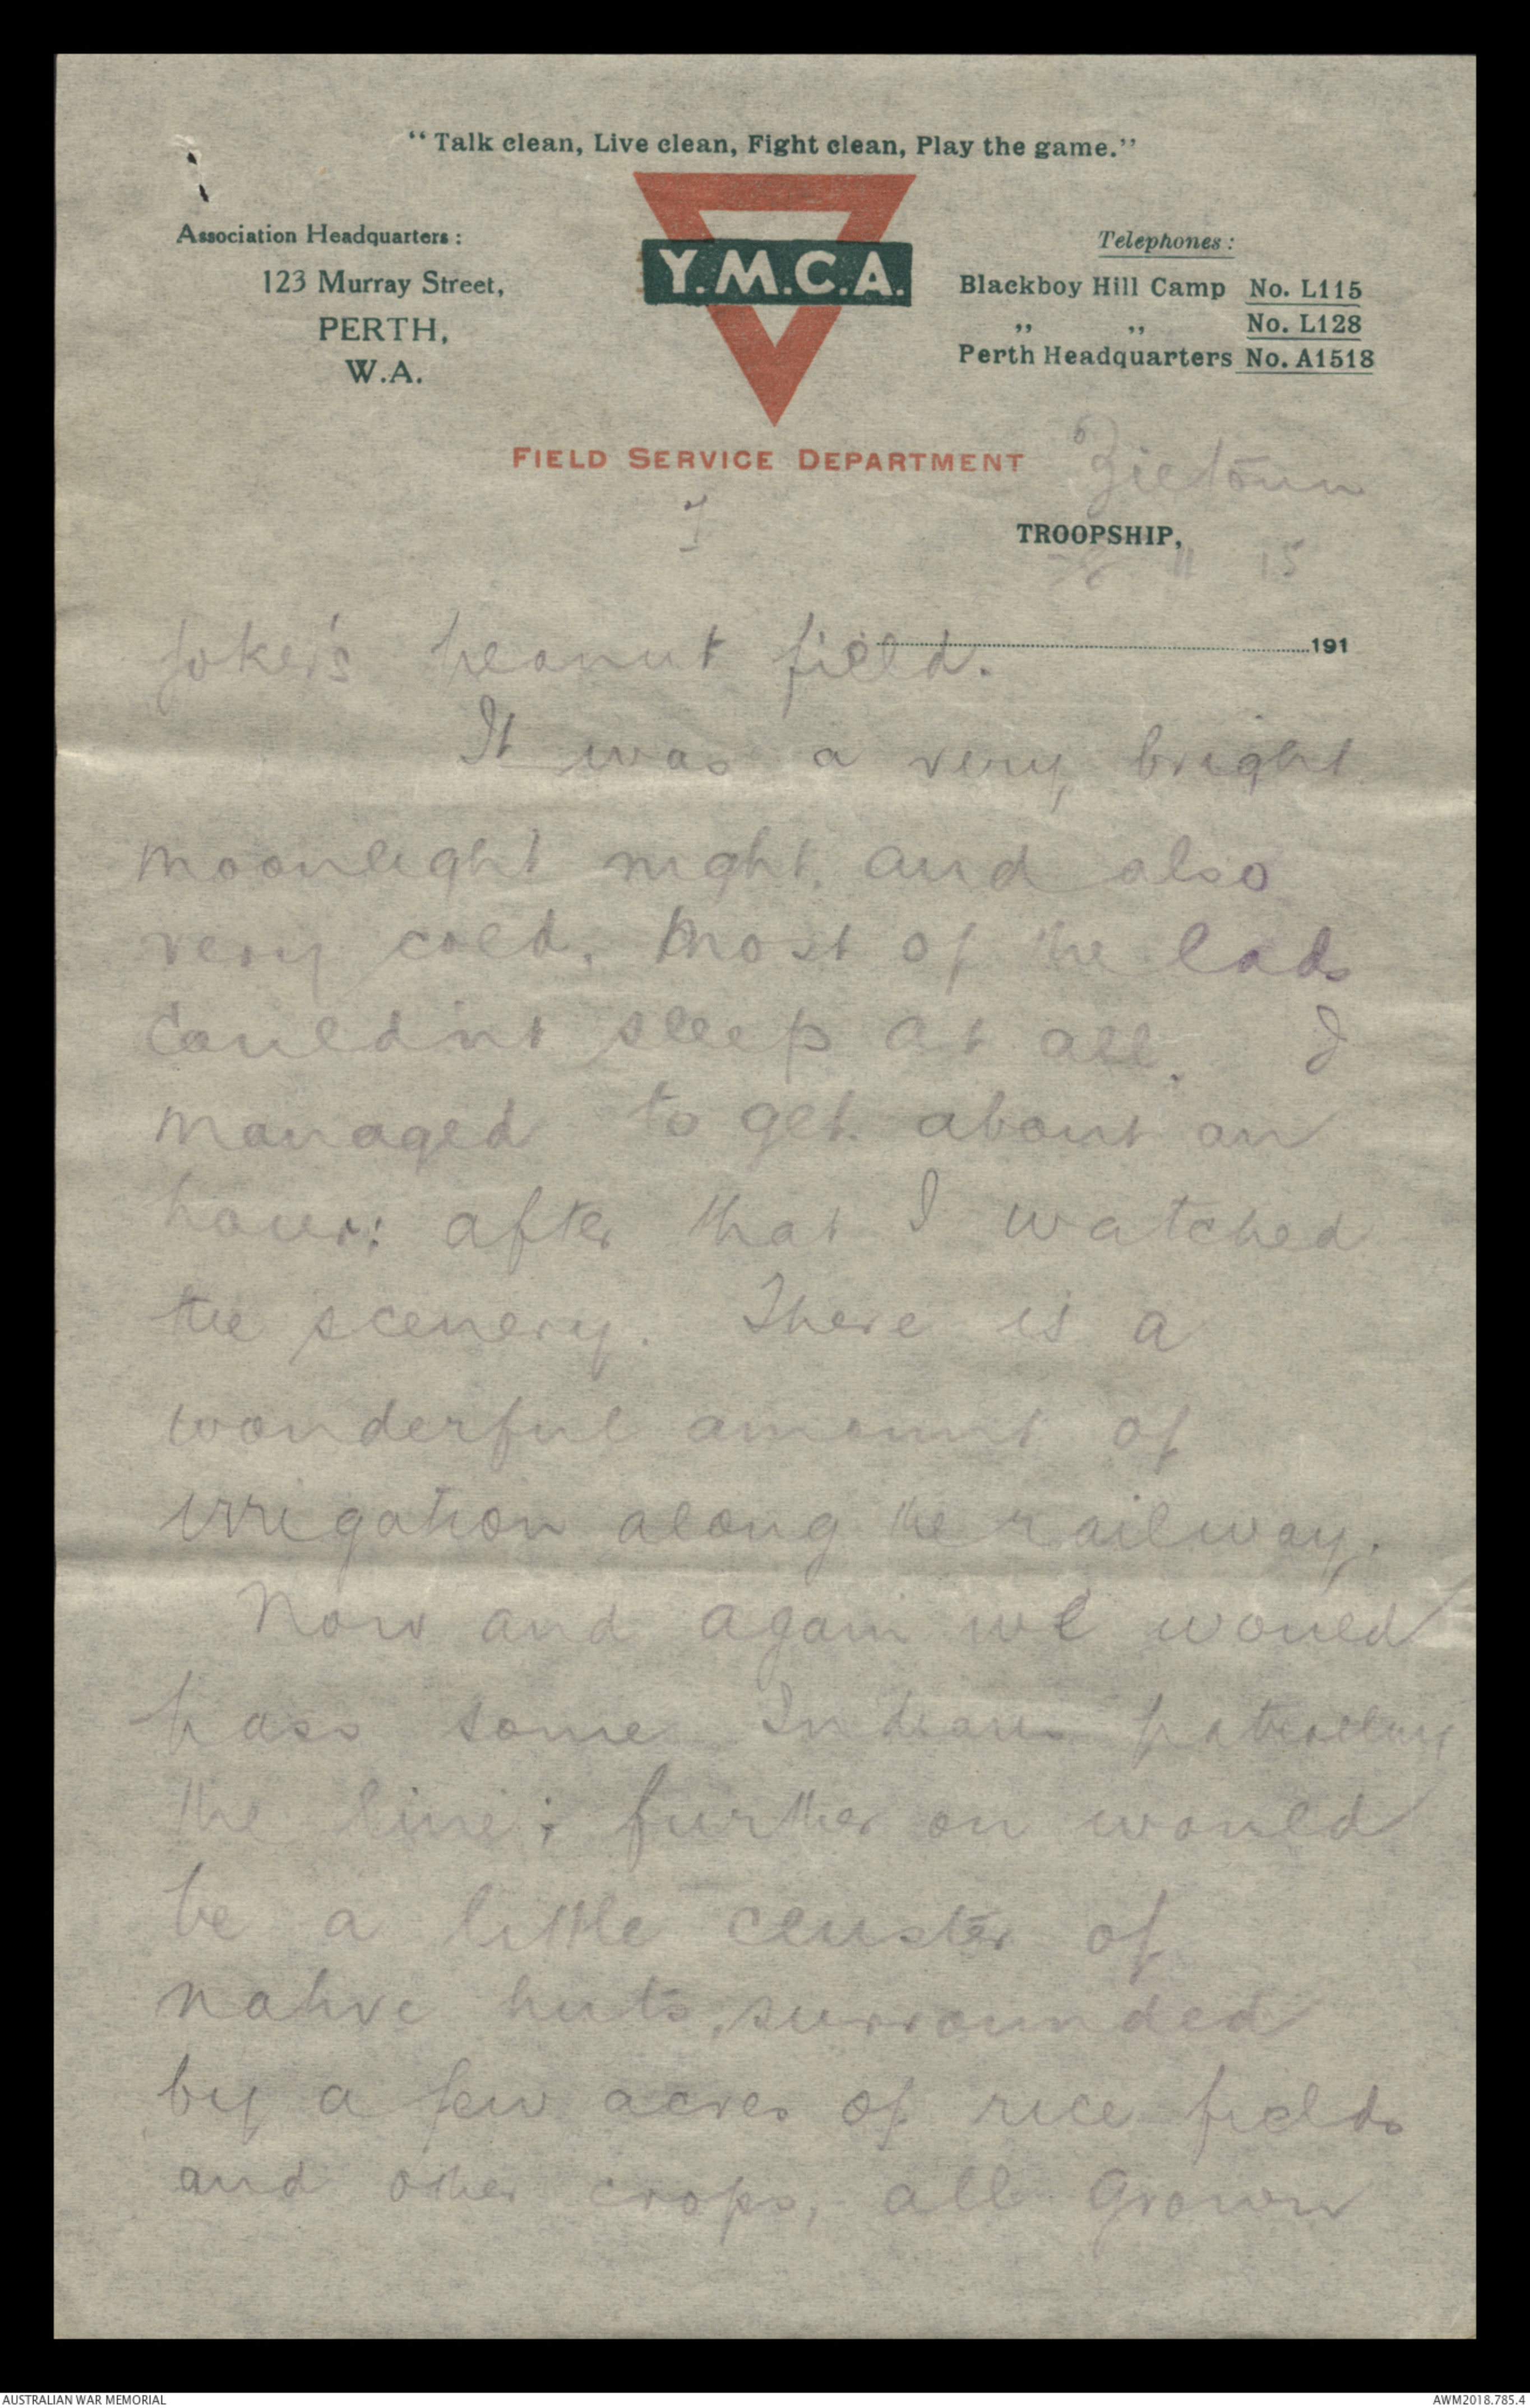 "Talk clean, Live clean, Fight clean, Play the game."
Association Headquarters:
123 Murray Street,
PERTH,
W.A.
Y.M.C.A.
Telephones:
Blackboy Hill Camp No. L115
,, ,, No. L128
Perth Headquarters No. A1518
FIELD SERVICE DEPARTMENT
Zietoun
TROOPSHIP,
11 15
191
joker's peanut field.
It was a very bright
moonlight night, and also
very cold. Most of the lads
couldn't sleep at all. I
managed to get about an
hour; after that I watched
the scenery. There is a
wonderful amount of
irrigation along the railway.
Now and again we would
pass some Indians patrolling
the line; further on would
be a little cluster of
native huts, surrounded
by a few acres of rice fields
and other crops, all grown
AUSTRALIAN WAR MEMORIAL
AWM2018.785.4